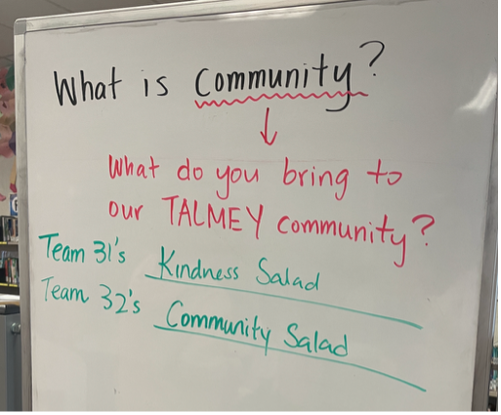 What is Community?
What do you bring to
our TALMEY community?
Team 31's Kindness Salad
Team 32's Community Salad